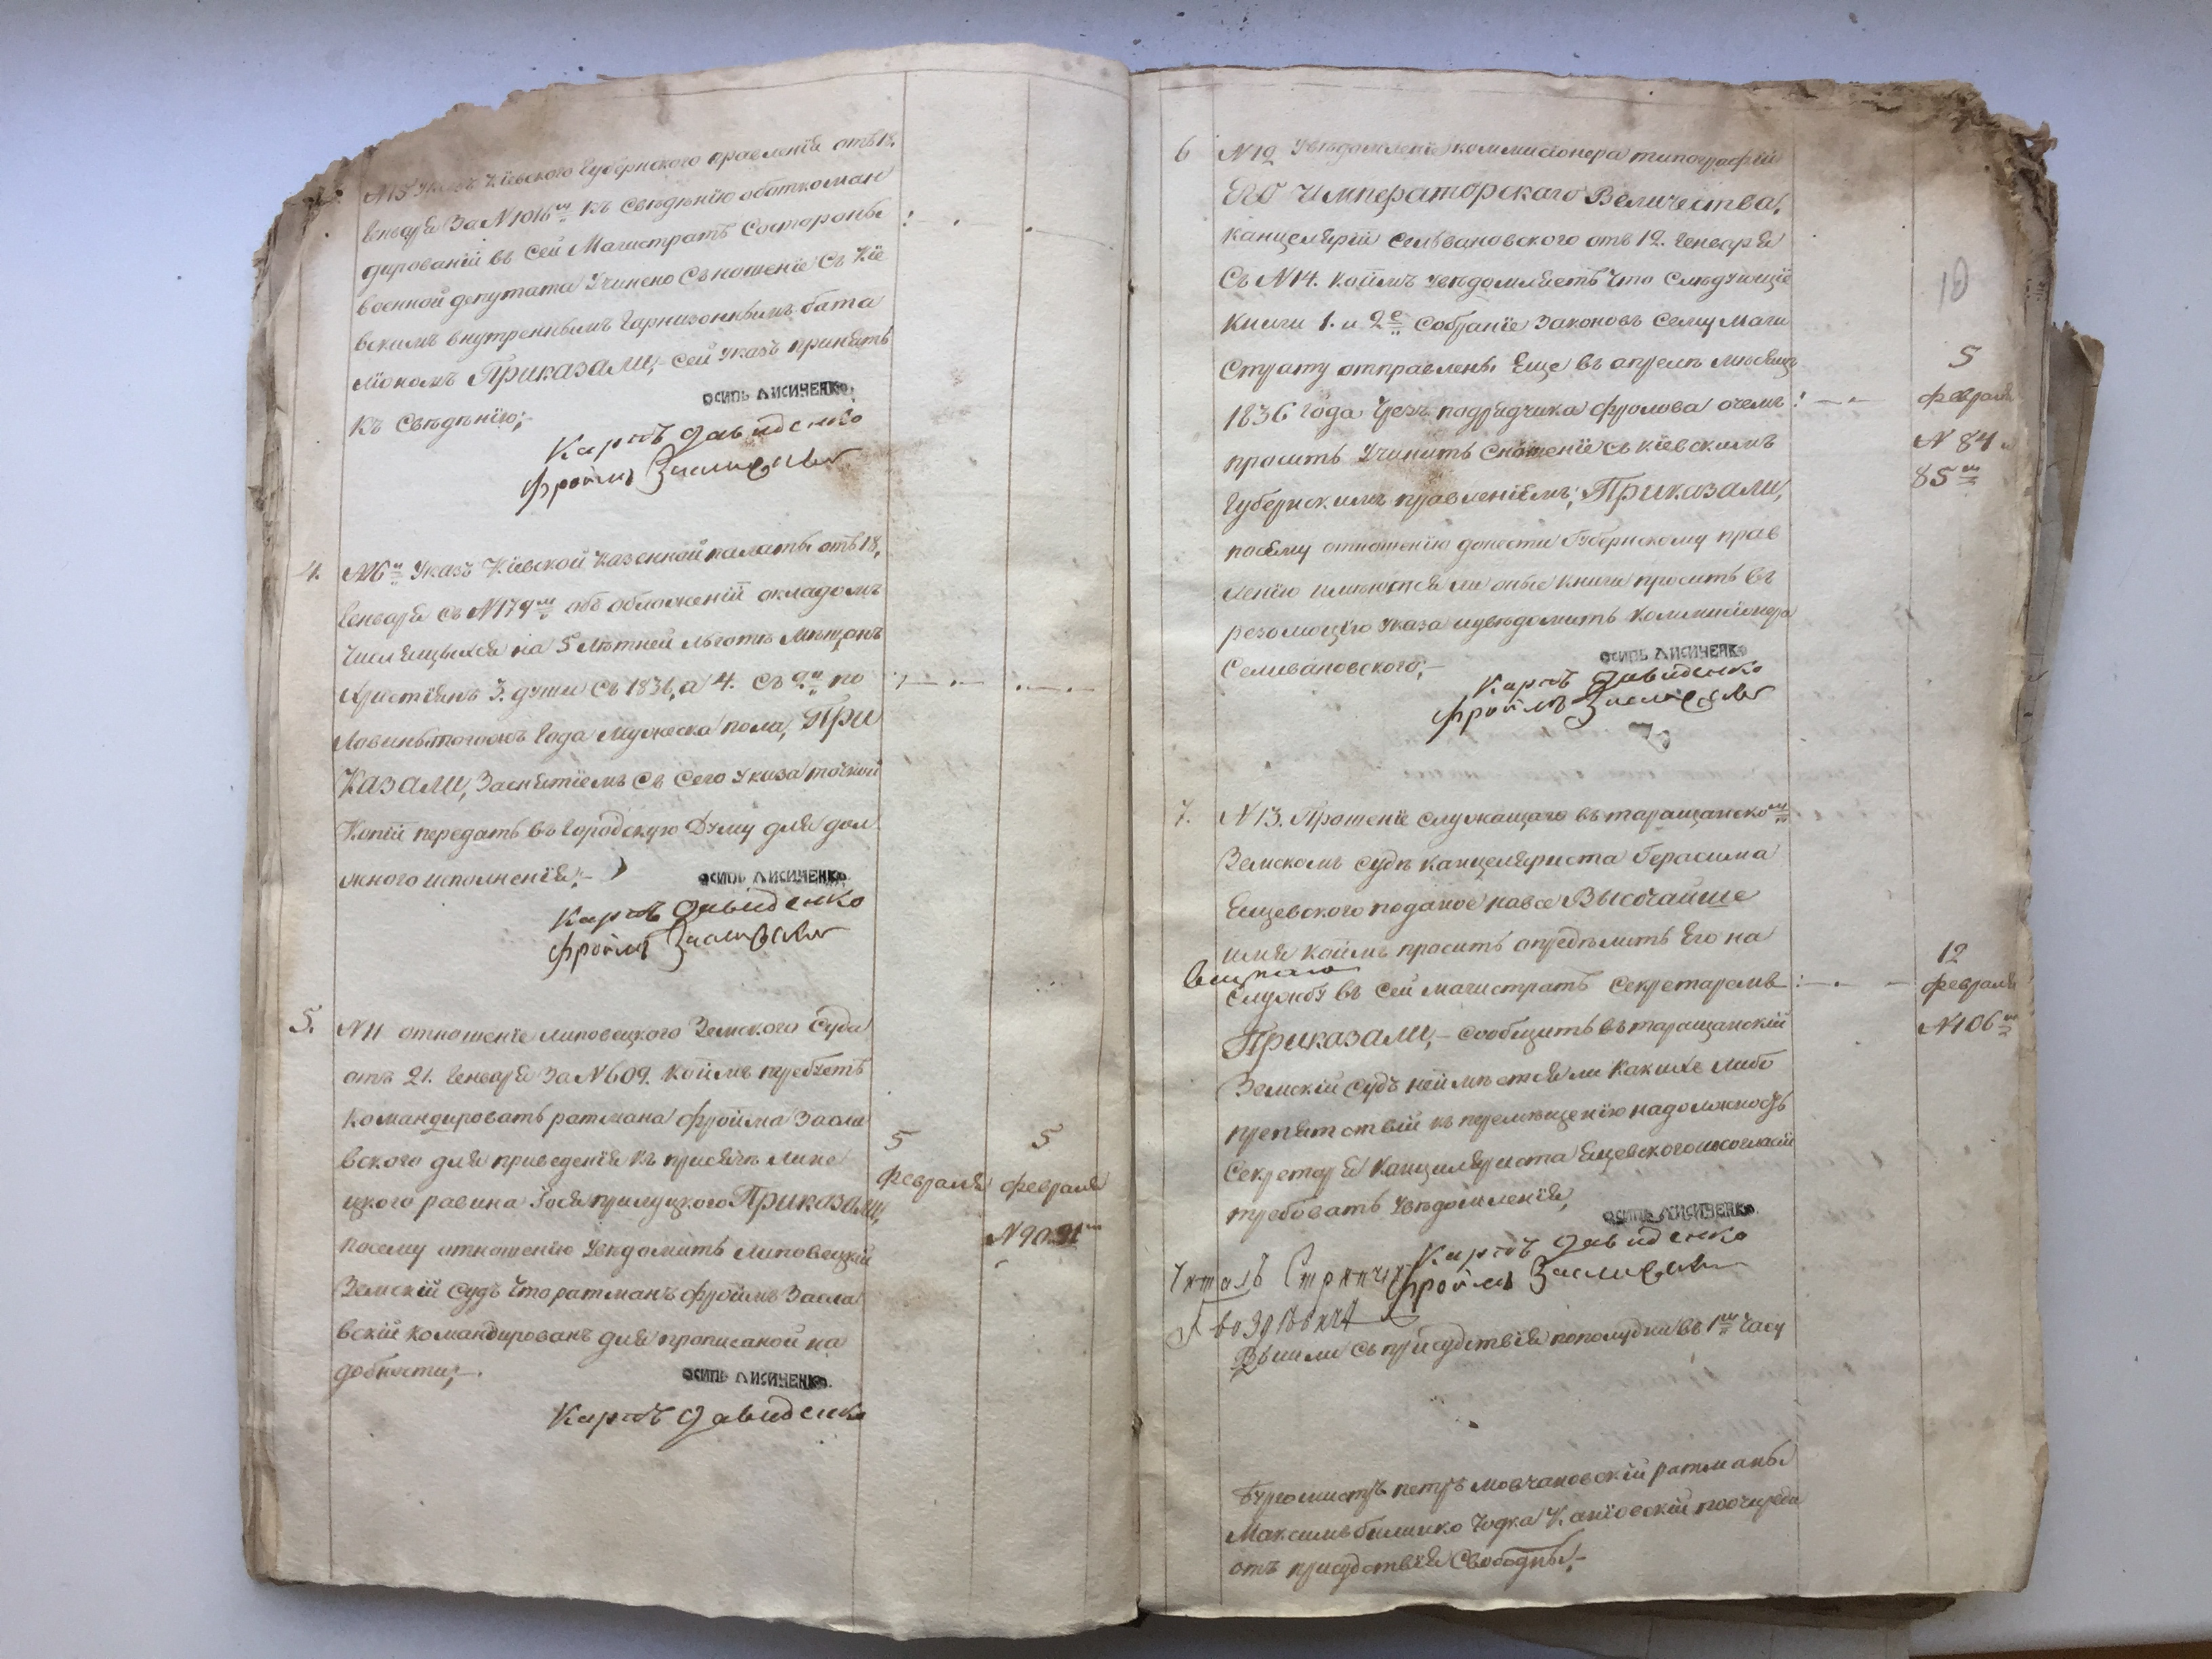 N15 Указъ Кіевского Губернского правленія отъ 18.
Генваря За N 1016м къ свѣденію оботкоман
дированій въ сей Магистратъ Состороны
военной депутата Учинено Сношеніе Съ Кіе
вскимъ внутреннымъ Гарнизоннымъ бата
ліономъ Приказали,- сей Указъ принять
къ Свѣдѣнію;-
ОСИПЬ ЛИСИЧЕНКО,
Карпъ Давиденко
Фроимъ Заславский
4. N16м Указъ Кіевской Казенной палаты отъ 18,
Генваря съ N 179м объ обложеній окладомъ
Числящыхся на 5 лѣтней льготѣ Мѣщанъ
Христіянъ 3. души Съ 1831, а 4. съ 2й по
ловины тогожъ Года Мужеска пола, При
Казали, Заснятіемъ Съ Сего Указа точной
Копіи передать въ Городскую Думу для дол
жного исполненія;-
ОСИПЬ ЛИСИЧЕНКО.
Карпъ Давиденко
Фроимъ Заславский
5. N11 отношеніе Липовецкого Земского Суда
отъ 21. Генваря За N 609. коимъ требуетъ
командировать ратмана Фройма Засла
вского для приведенія къ присягѣ Липо
вецкого равина Прилуцкого Приказали,
посему отношенію Увѣдомить Липовецкій
Земскій Судъ Что ратманъ Фройимъ Засла
вскій командированъ для прописаной на
добности;-.
5
Февраля
5
Февраля
N 90.91
ОСИПЬ ЛИСИЧЕНКО.
Карпъ Давиденко
10
6 N12 Увѣдомленіе коммисіонера типографіи
ЕГО Императорского Величества,
канцеляріи Селивановского отъ 12. Генваря
Съ N 14. Коимъ Увѣдомляетъ Что Слѣдующіе
книги 1. и 2е Собраніе Законовъ Сему Маги
Страту отправлены Еще въ апрелѣ мѣсяцѣ
1836 Года Чрезъ подрядчика Фролова очемъ
проситъ Учинить Сношеніе съ Кіевскимъ
Губернскимъ правленіемъ; Приказали,
посему отношенію донести Губернскому прав
ленію имѣются ли оные книги просить въ
резолюцію Указа и увѣдомить Коммисіонера
Селивановского;-
5
Февраля
N 84 и
85м
ОСИПЬ ЛИСИЧЕНКО
Карпъ Давиденко
Фроимъ Заславский
7. N 13. Прошеніе служащаго въ таращанском
Земскомъ судѣ канцеляриста Герасима
Ещевского поданое на все Высочайше
имя коимъ проситъ опредѣлить Его на
Службу въ сей магистратъ Секретаремъ
Приказали,- сообщить въ таращанскій
Земскій судъ неимѣется ли какихъ либо
препятствій къ перемѣщенію надолжность
Секретаря Канцеляриста Ещевского
требовать Увѣдомленія,
12
Февраля
N 106м
ОСИПЬ ЛИСИЧЕНКО.
Карпъ Давиденко
Читалъ Стряпчій
Фроимъ Заславский
Вышли съ присудствія пополудни въ 1м Часу
Бургомистръ петръ мовчановскій ратманы
Максимъ Билинко Каніовскій поочереди
отъ присудствія Свободны;-